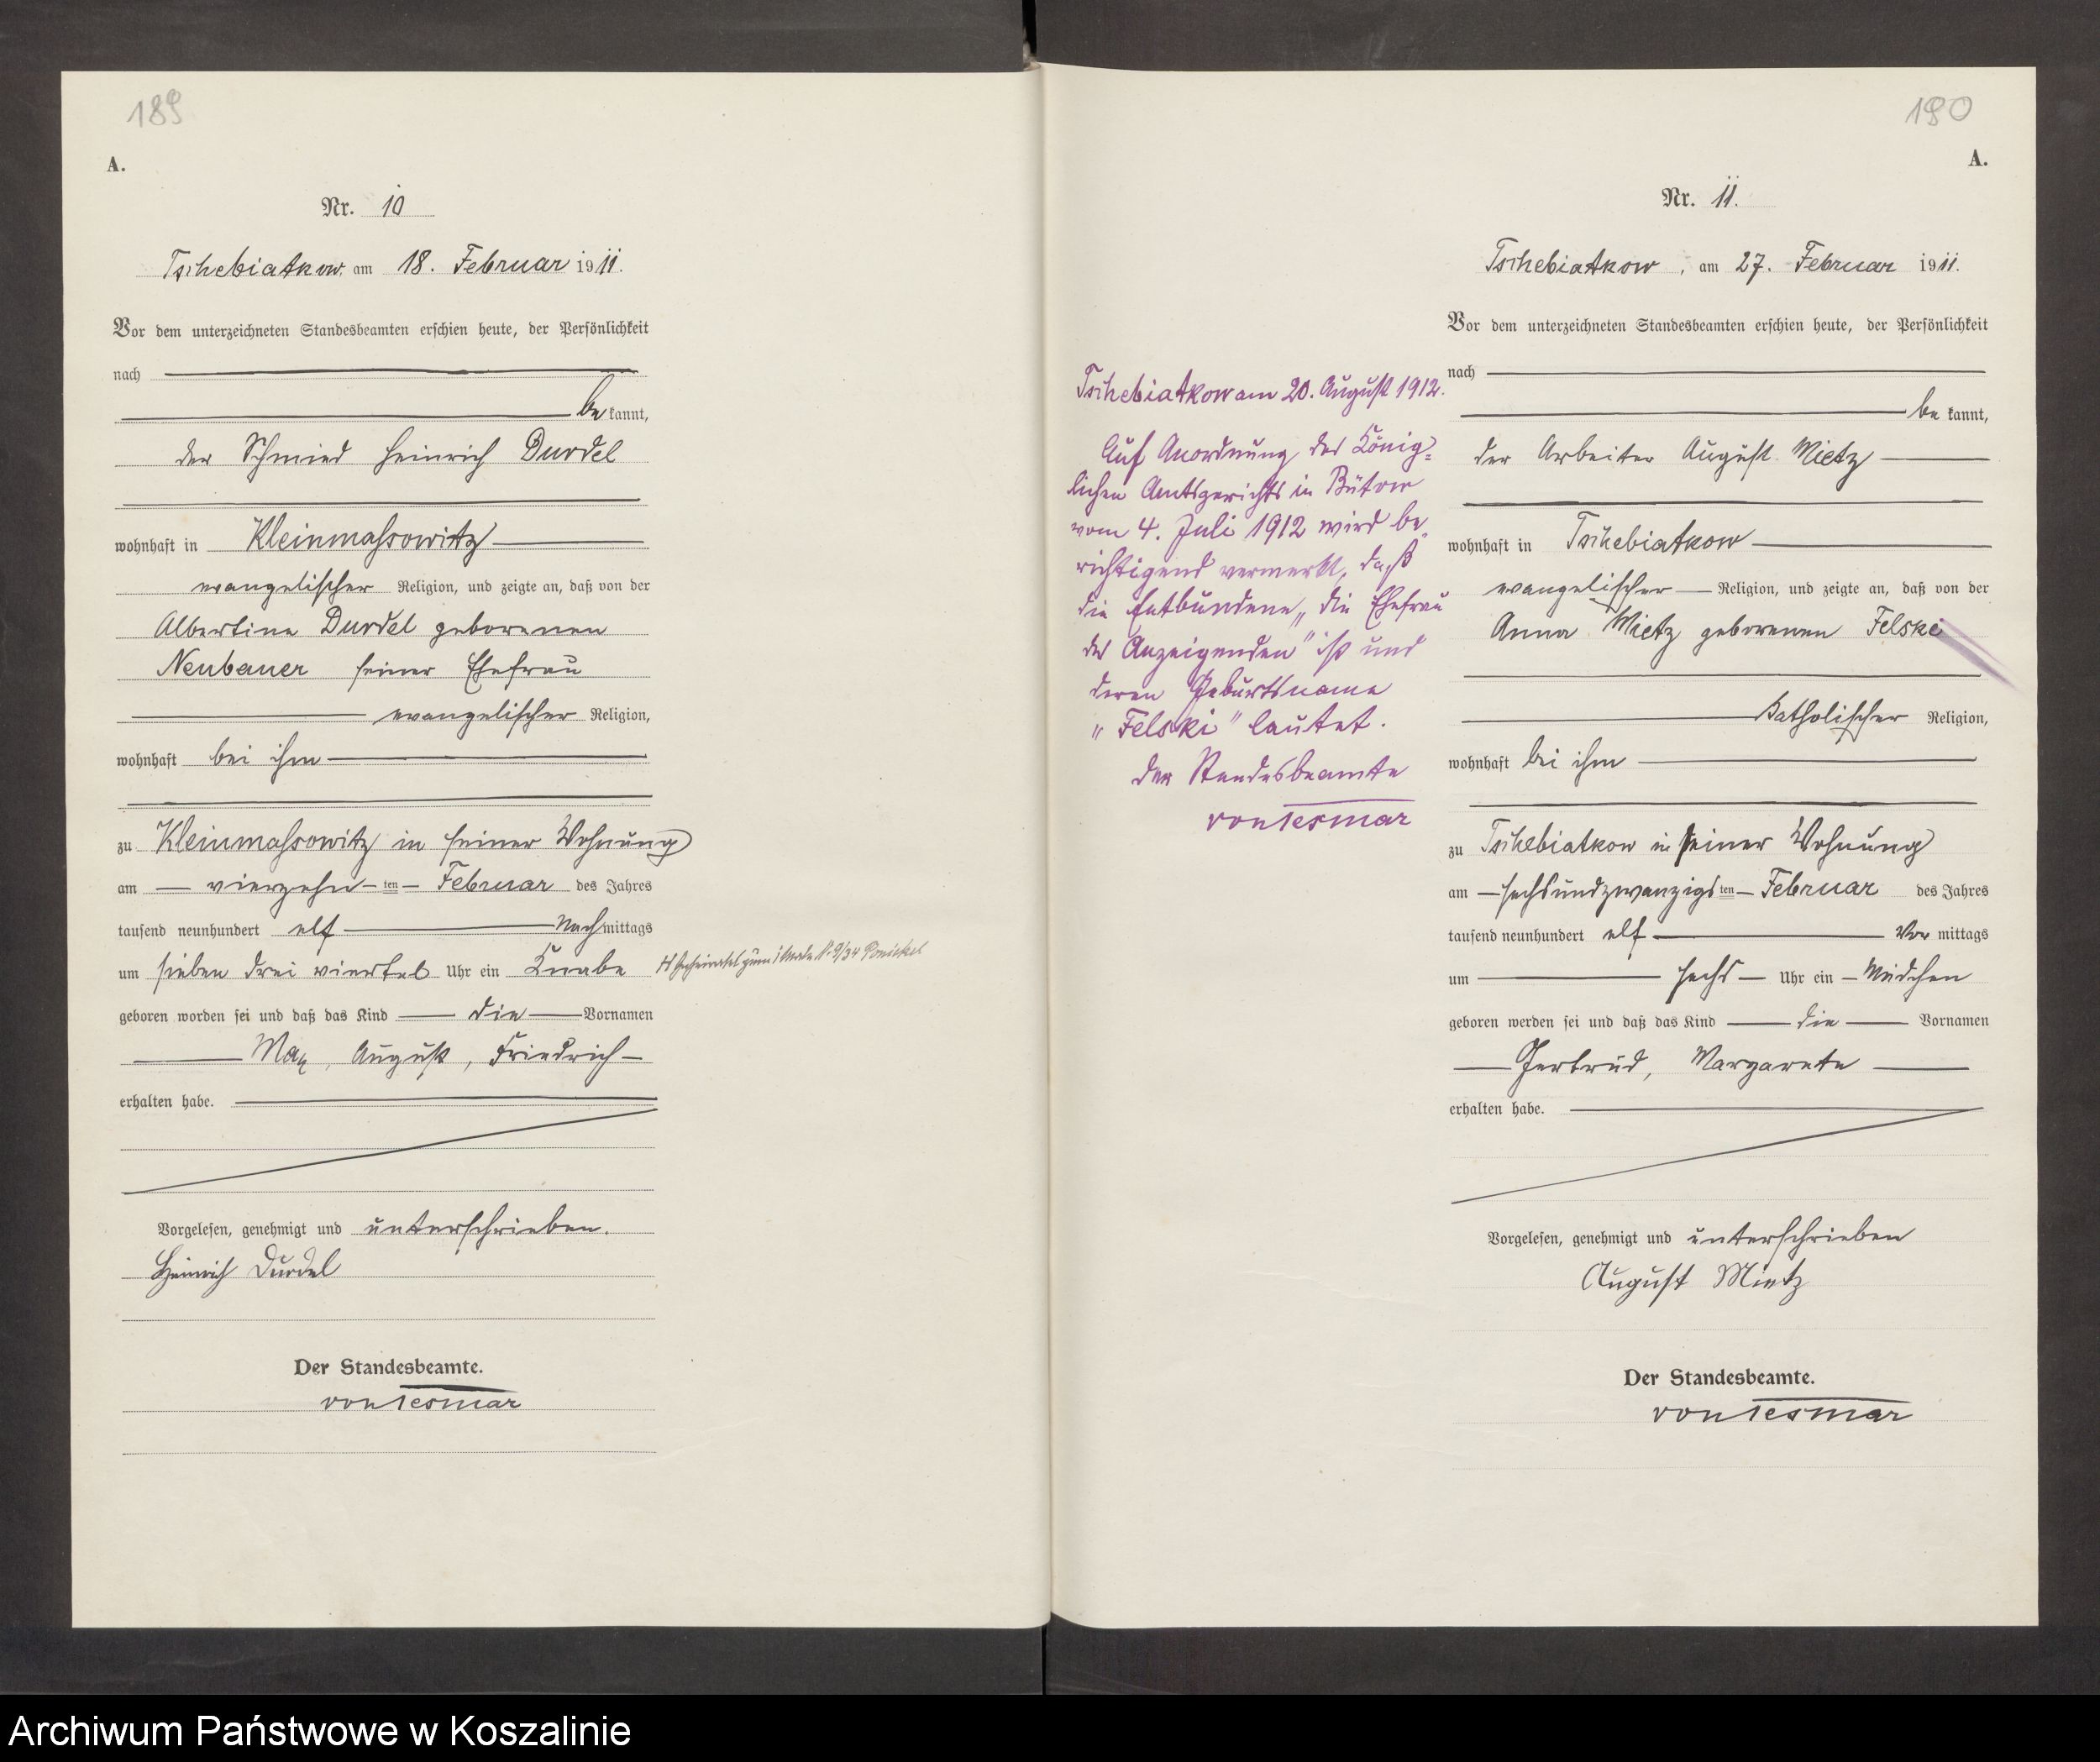 189
A.
Nr. 10
Tschebiatkow am 18. Februar 1911.
Vor dem unterzeichneten Standesbeamten erschien heute, der Persönlichkeit
nach
be kannt,
der Schmied Heinrich Durdel
wohnhaft in Kleinmassowitz
evangelischer Religion, und zeigte an, daß von der
Albertine Durdel geborenen
Neubauer seiner Ehefrau
evangelischer Religion,
wohnhaft bei ihm
zu Kleinmassowitz in seiner Wohnung
am vierzehn ten Februar des Jahres
tausend neunhundert elf Nachmittags
um sieben drei viertel Uhr ein Knabe
geboren worden sei und daß das Kind die Vornamen
Max, August, Friedrich
erhalten habe.
Vorgelesen, genehmigt und unterschrieben.
Heinrich Durdel
Der Standesbeamte.
von Tesmar
190
A.
Nr. 11.
Tschebiatkow, am 27. Februar 1911.
Vor dem unterzeichneten Standesbeamten erschien heute, der Persönlichkeit
nach
be kannt,
der Arbeiter August Mietz
wohnhaft in Tschebiatkow
evangelischer Religion, und zeigte an, daß von der
Anna Mietz geborenen Felske
Katholischer Religion,
wohnhaft bei ihm
zu Tschebiatkow in seiner Wohnung
am sechsundzwanzigs ten Februar des Jahres
tausend neunhundert elf Vor mittags
um sechs Uhr ein Mädchen
geboren werden sei und daß das Kind die Vornamen
Gertrud, Margarete
erhalten habe.
Vorgelesen, genehmigt und unterschrieben
August Mietz
Der Standesbeamte.
von Tesmar
Tschebiatkow am 20. August 1912.
Auf Anordnung des König=
lichen Amtsgerichts in Bütow
vom 4. Juli 1912 wird be
richtigend vermerkt, daß
die Entbundene „die Ehefrau
des Anzeigenden" ist und
deren Geburtsname
„Felski" lautet.
Der Standesbeamte
von Tesmar
Archiwum Państwowe w Koszalinie